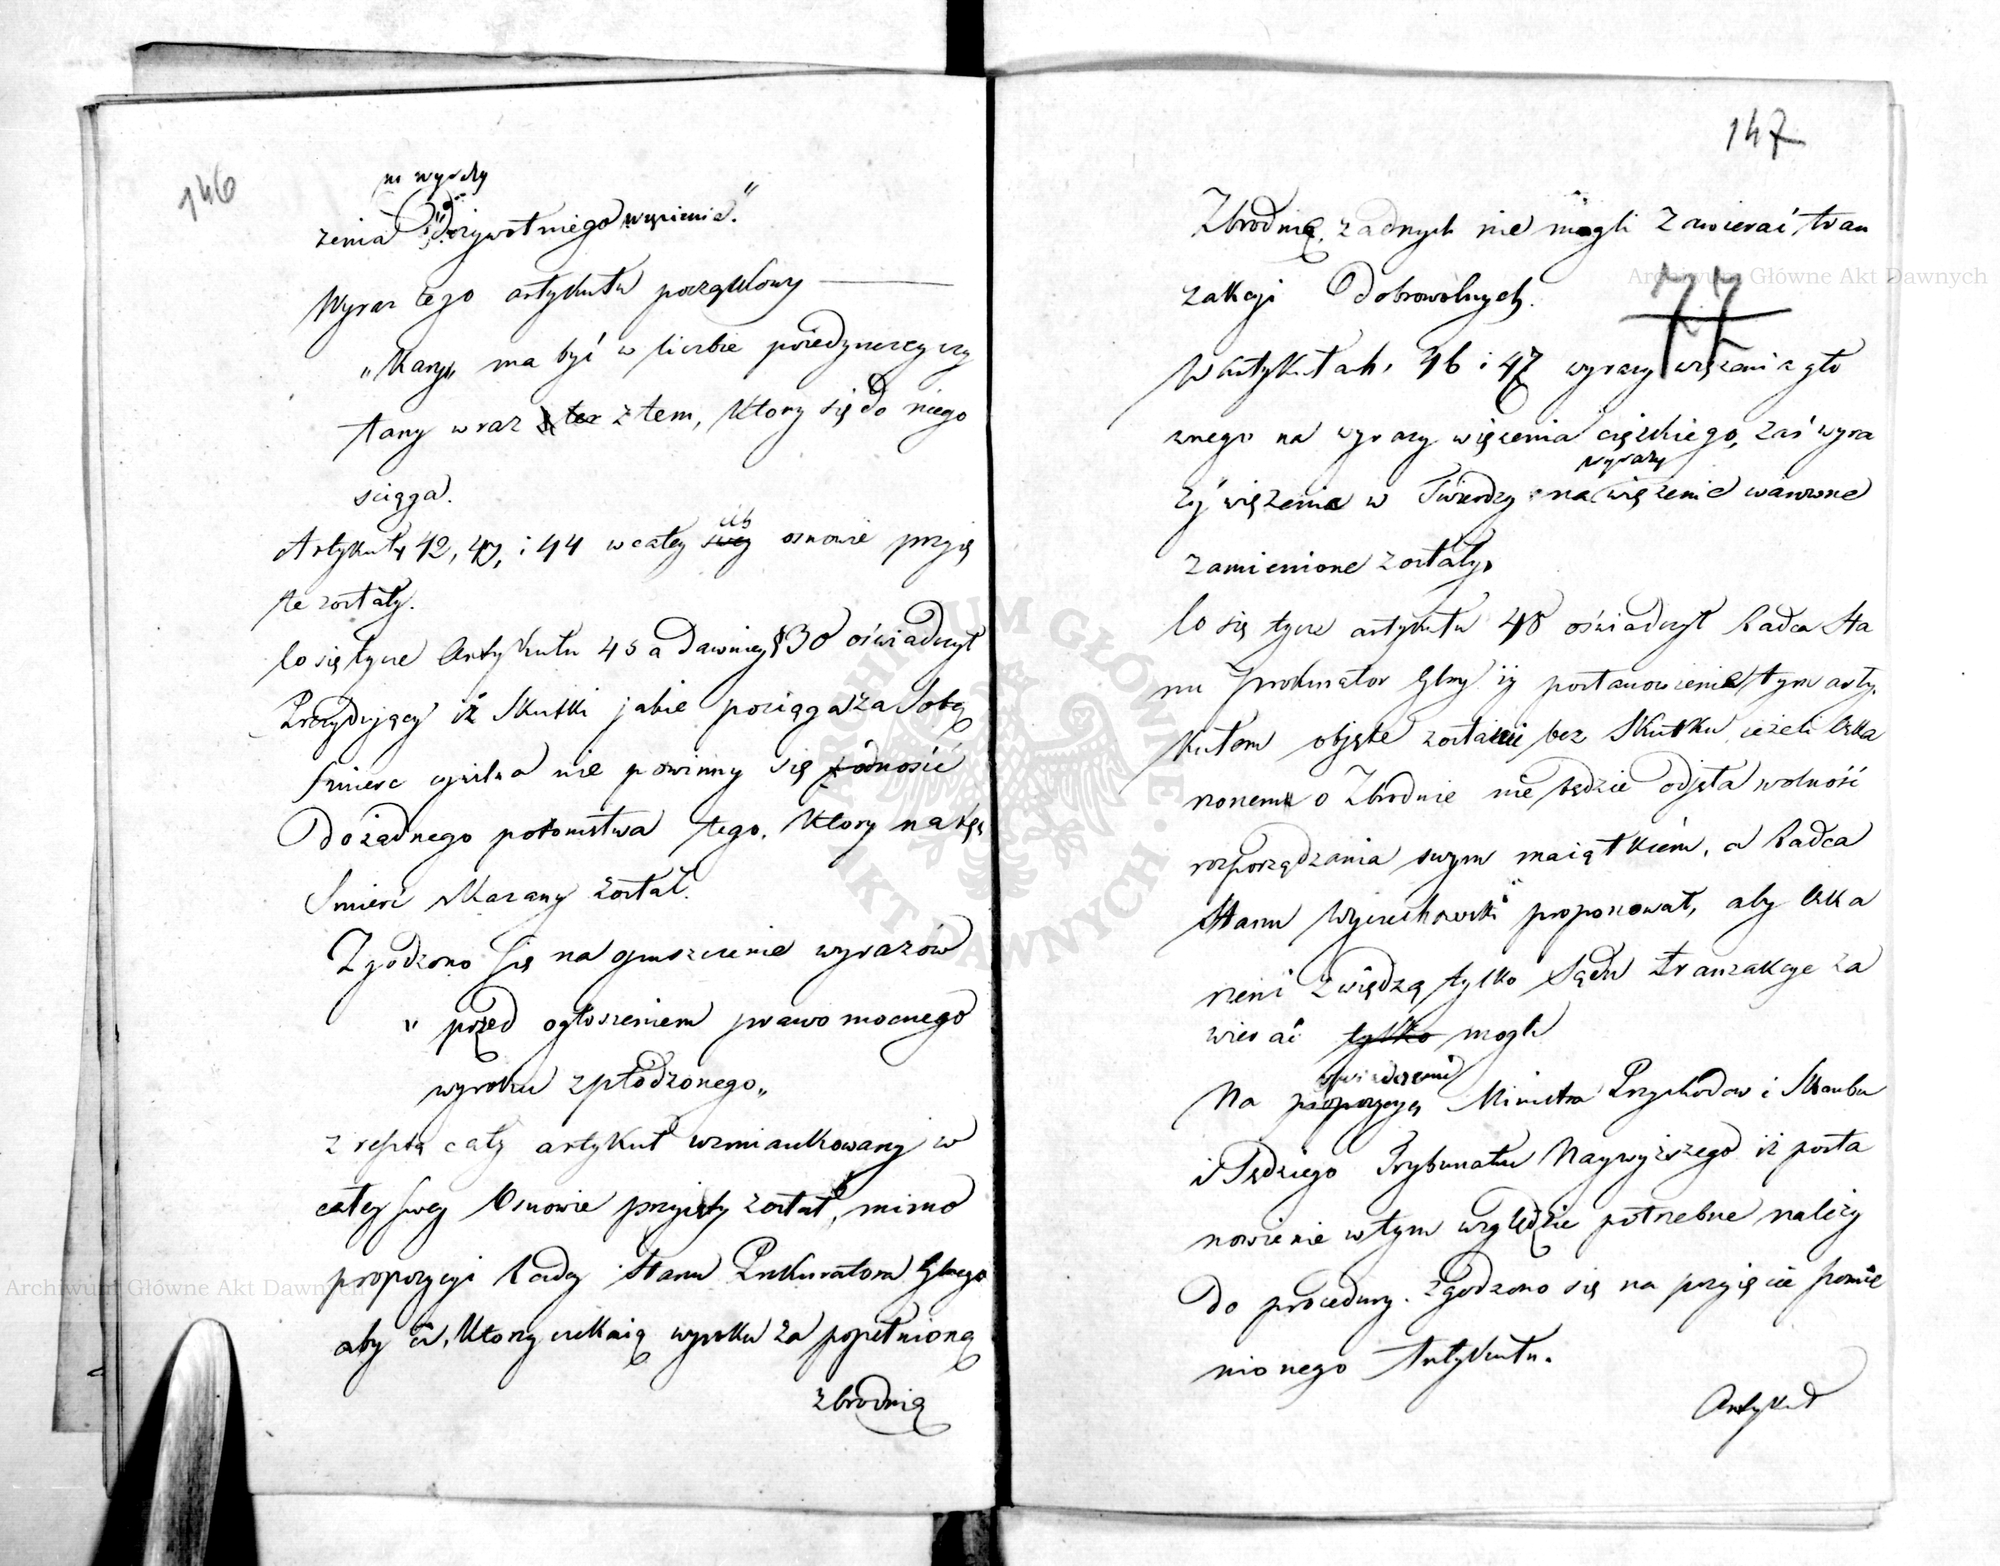 146
na wyrazy
żenia "dożywotniego więzienia."
Wyraz tego artykułu początkowy ———
„Kary„ ma być w liczbie poiedynczey czy
tany wraz z tem, który się do niego
sciąga.
Artykuły 42, 43, i 44 w całey ich osnowie przyię
te zostały.
Co się tycze Artykułu 45 a dawniey § 30 oświadczył
Prezyduiący iż skutki jakie pociąga za sobą
śmierc cywilna nie powinny się odnosić
do żadnego potomstwa tego, który na tę
śmierć skazany został.
Zgodzono się na opuszczenie wyrazów
„ przed ogłoszeniem prawomocnego
wyroku zpłodzonego„
z resztą cały artykuł wzmiankowany w
całey swey Osnowie przyięty został, mimo
propozycyi Radcy Stanu Prokuratora Glnego
aby ci, którzy czekaią wyroku za popełnioną
zbrodnią
147
Zbrodnię, żadnych nie mogli zawierać tran
zakcji dobrowolnych.
77
W Artykułach, 46 i 47 wyrazy więzenia głó
wnego na wyrazy więzenia cięzkiego, zaś wyra
wyrazy
zy więzenia w Twierdzy na więzenie warowne
zamienione zostały.
Co się tycze artykułu 48 oświadczył Radca Sta
nu Prokurator Glny iż postanowienie tym arty
kułem objęte zostanie bez skutku ieżeli oska
rzonemu o Zbrodnie nie będzie odjęta wolność
rozporządzania swym maiątkiem, a Radca
Stanu Wyczechowski proponował, aby oska
rzeni z wiedzą tylko Sądu tranzakcje za
wierać tylko mogli
oświadczenie
Na propozycyą Ministra Przychodow i Skarbu
i Sędziego Trybunału Naywyższego iż posta
nowienie w tym względzie potrzebne należy
do procedury. zgodzono się na przyięcie pomie
nionego Artykułu.
Artykuł
Archiwum Główne Akt Dawnych
Archiwum Główne Akt Dawnych
ARCHIWUM GŁÓWNE AKT DAWNYCH